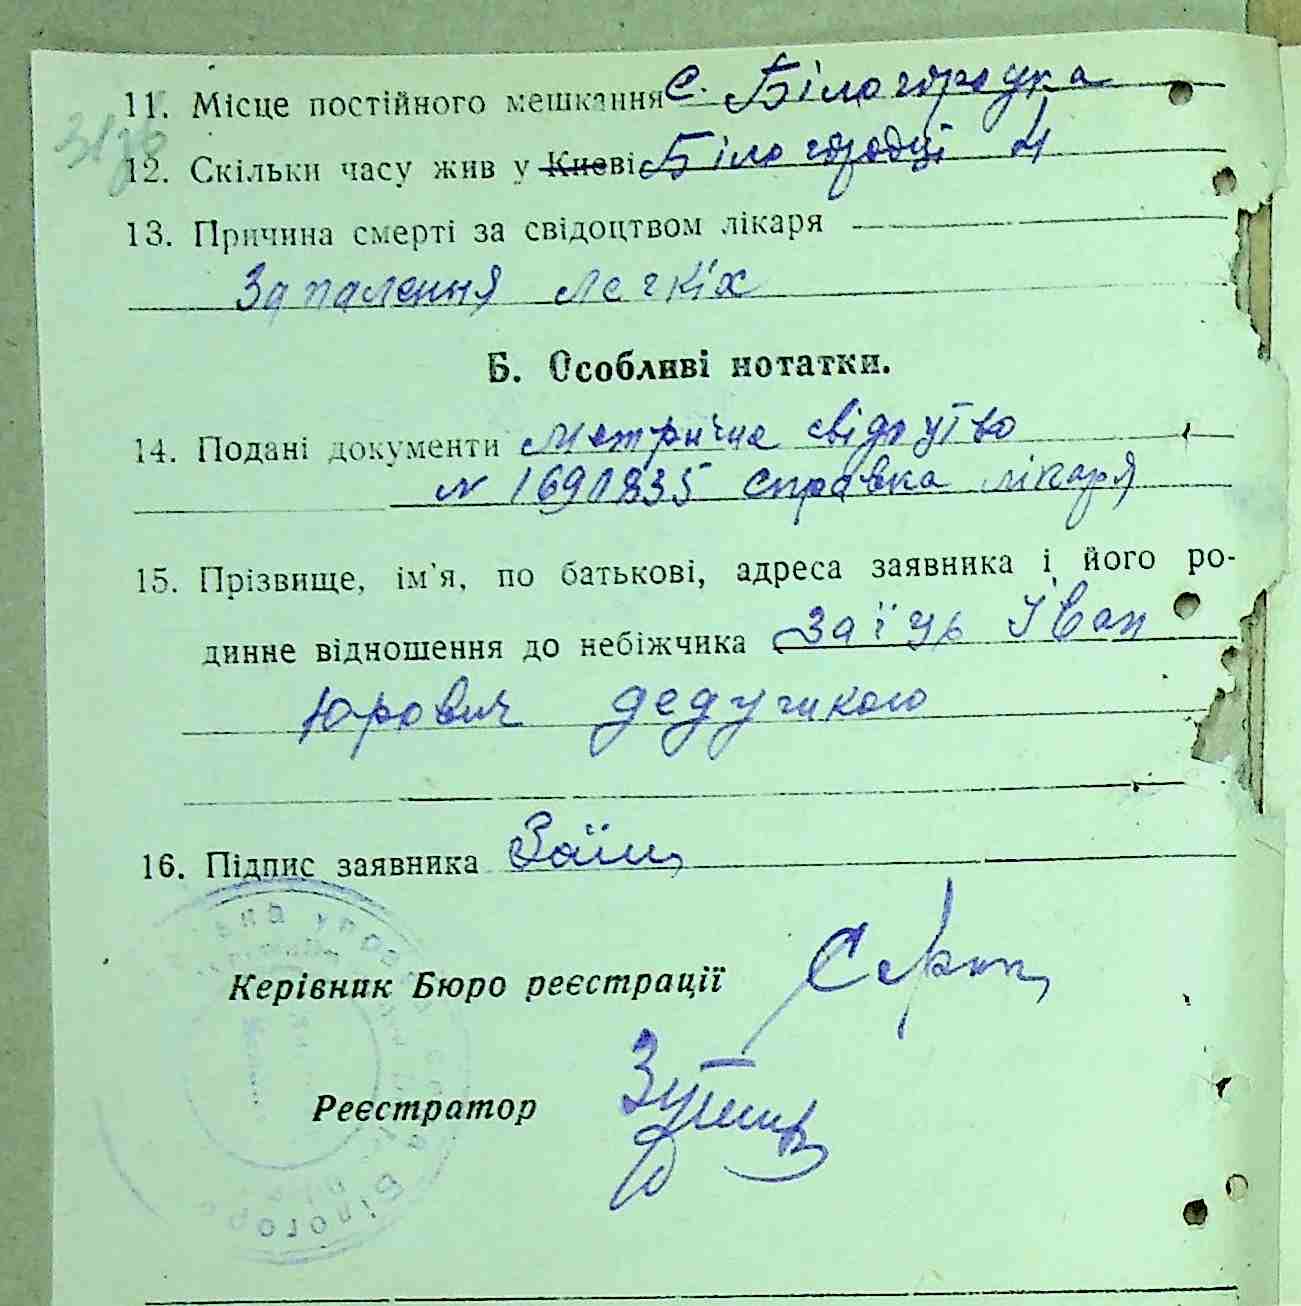 11. Місце постійного мешкання с. Білогородка
12. Скільки часу жив у Києві Білогородці 4
13. Причина смерті за свідоцтвом лікаря
Запалення легкіх
Б. Особливі нотатки.
14. Подані документи Метричне свідоцтво
N 1690835 справка лікаря
15. Прізвище, ім'я, по батькові, адреса заявника і його ро-
динне відношення до небіжчика Заїць Іван
Юрович дедушкою
16. Підпис заявника Заїц
Керівник Бюро реєстрації
Реєстратор